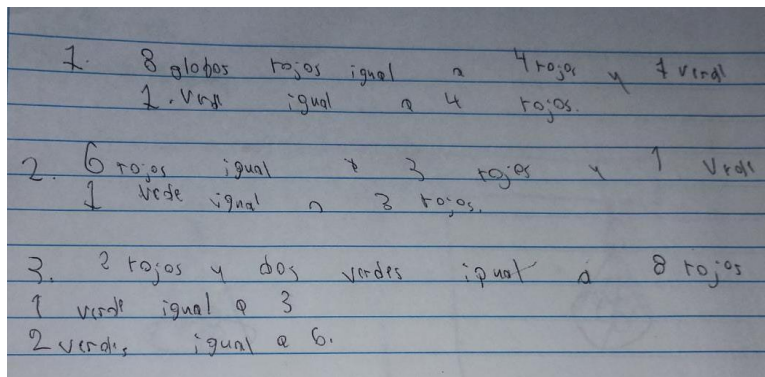 1. 8 globos rojos igual a 4 rojos y 1 verde
1. verde igual a 4 rojos.
2. 6 rojos igual a 3 rojos y 1 verde
1 verde igual a 3 rojos.
3. 2 rojos y dos verdes igual a 8 rojos
1 verde igual a 3
2 verdes igual a 6.